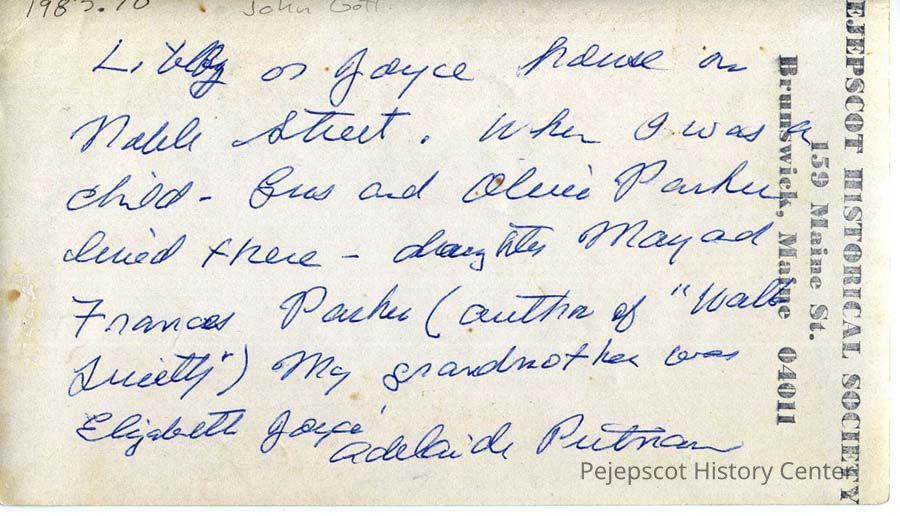 198 .70 John Gott
Libby or Joyce house on
Noble Street. When I was a
child - Gus and Olivei Parker
lived there - daughter May ad
Frances Parker (author of "Walk
Swiftly") My grandmother was
Elizabeth Joyce
Adelaide Putnam
EJEPSCOT HISTORICAL SOCIETY
159 Maine St.
Brunswick, Maine 04011
Pejepscot History Center